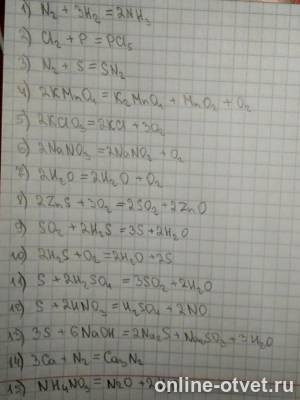 1) N₂ + 3H₂ = 2NH₃
2) Cl₂ + P = PCl₅
3) N₂ + S = SN₂
4) 2KMnO₄ = K₂MnO₄ + MnO₂ + O₂
5) 2KClO₃ = 2KCl + 3O₂
6) 2NaNO₃ = 2NaNO₂ + O₂
7) 2H₂O = 2H₂O + O₂
8) 2ZnS + 3O₂ = 2SO₂ + 2ZnO
9) SO₂ + 2H₂S = 3S + 2H₂O
10) 2H₂S + O₂ = 2H₂O + 2S
11) S + 2H₂SO₄ = 3SO₂ + 2H₂O
12) S + 2HNO₃ = H₂SO₄ + 2NO
13) 3S + 6NaOH = 2Na₂S + Na₂SO₃ + 3H₂O
14) 3Ca + N₂ = Ca₃N₂
15) NH₄NO₃ = N₂O +
online-otvet.ru